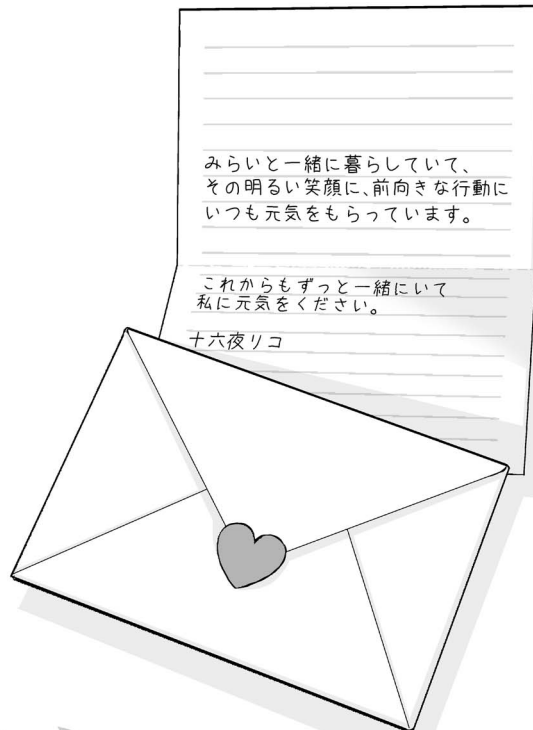 みらいと一緒に暮らしていて、
その明るい笑顔に、前向きな行動に
いつも元気をもらっています。
これからもずっと一緒にいて
私に元気をください。
十六夜リコ